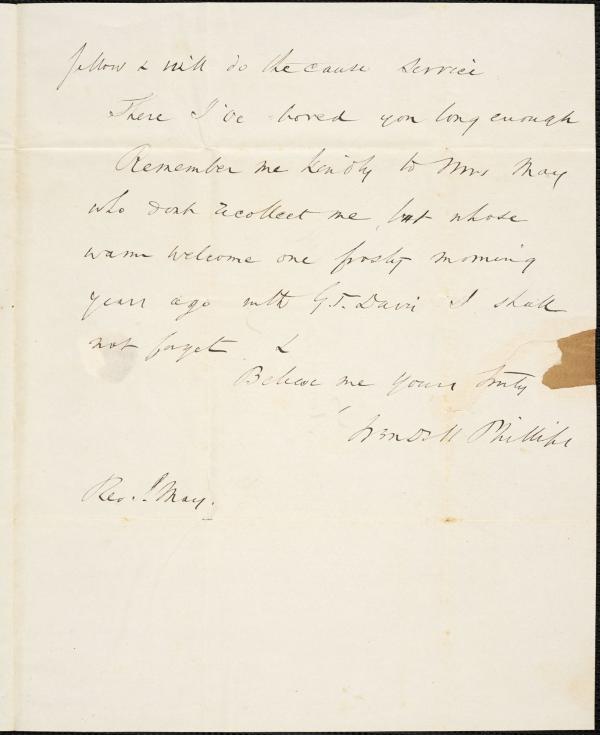 fellow & will do the cause service
There I've bored you long enough
Remember me kindly to Mrs May
who dont recollect me, but whose
warm welcome one frosty morning
years ago with G.T. Davis I shall
not forget &
Believe me yours truly
Wendell Phillips
Rev. J May.